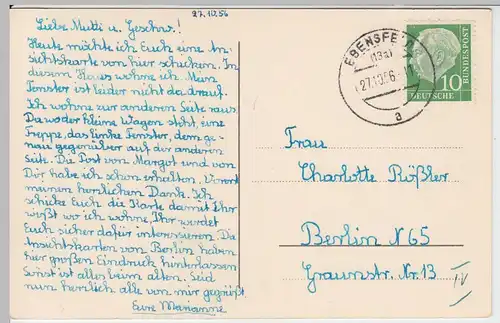 27.10.56
Liebe Mutti u. Geschw.!
Heute möchte ich Euch eine An-
sichtskarte von hier schicken. In
diesem Haus wohne ich. Mein
Fenster ist leider nicht da drauf.
Ich wohne zur anderen Seite raus.
Da wo der kleine Wagen steht, eine
Treppe, das linke Fenster, dem ge-
nau gegenüber auf der anderen
Seite. Da Post von Margot und von
Dir habe ich schon erhalten. Vorerst
meinen herzlichen Dank. Ich
schicke Euch die Karte damit Ihr
wißt wo ich wohne, Ihr werdet
Euch sicher dafür interessieren. Die
Ansichtskarten von Berlin haben
hier großen Eindruck hinterlassen
Sonst ist alles beim alten. Seid
nun herzlich alle von mir gegrüßt
Eure Marianne
EBENSFE
(13a)
27.10.56
a
10
DEUTSCHE
BUNDESPOST
Frau
Charlotte Rößler
Berlin N 65
Graunstr. Nr. 13
IV